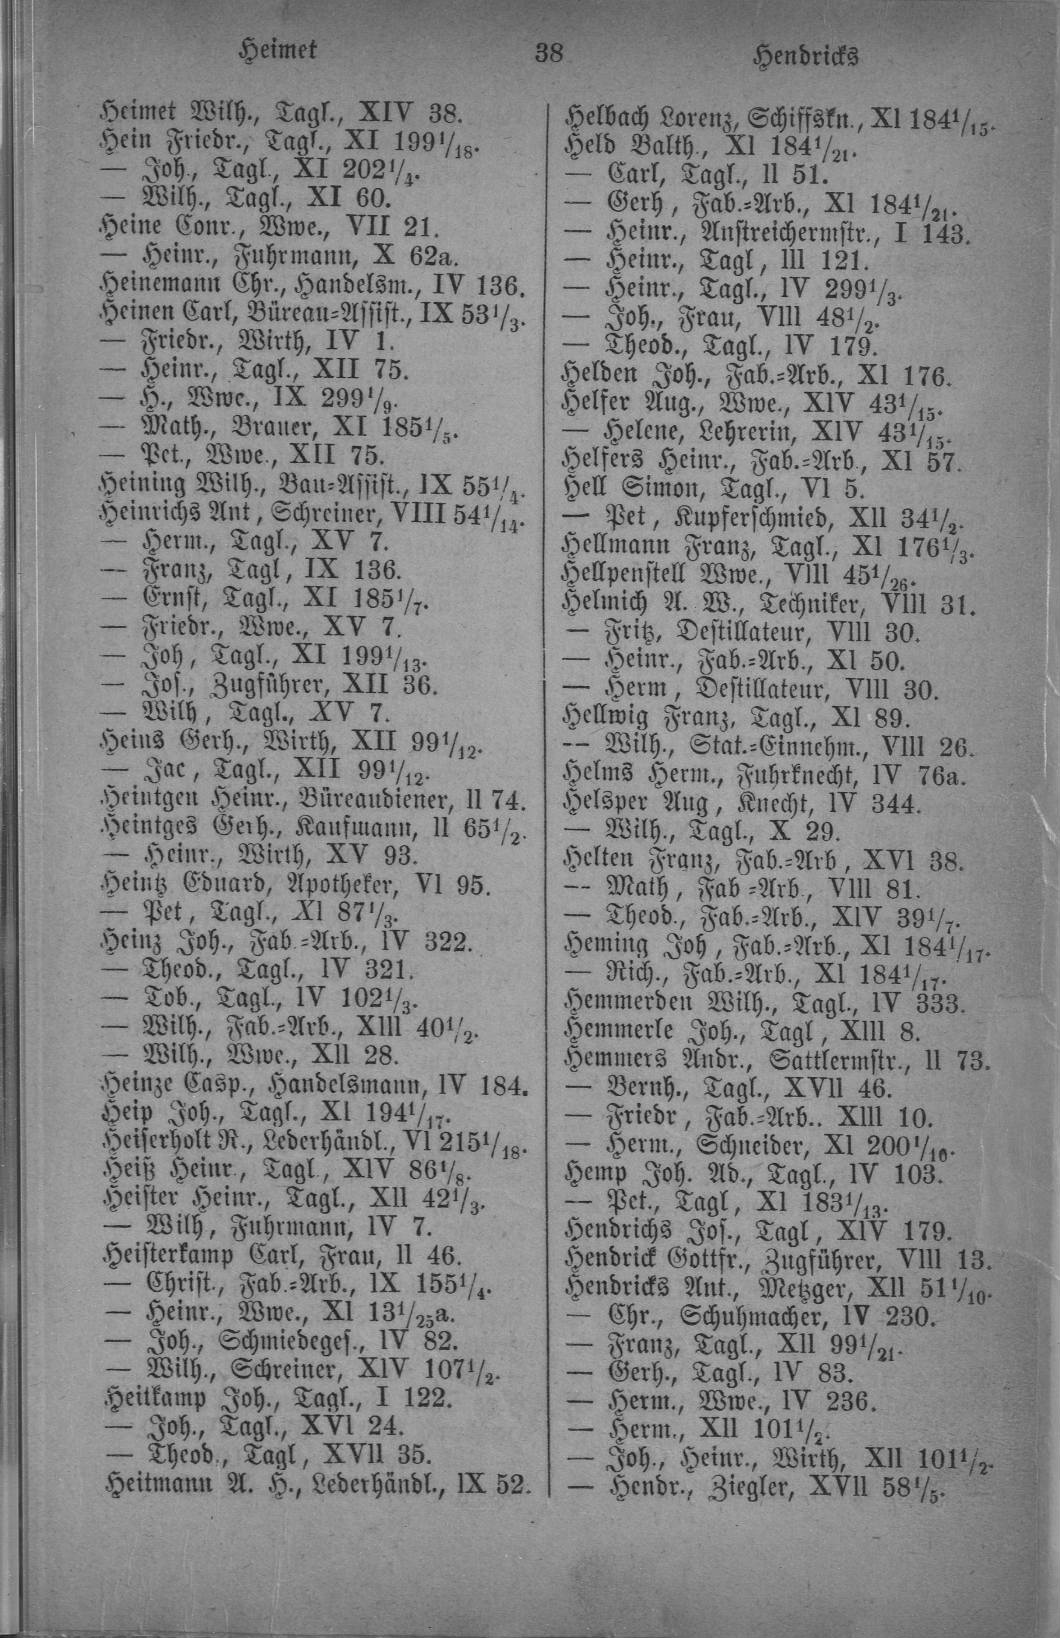 Heimet 38 Hendricks
Heimet Wilh., Tagl., XIV 38.
Hein Friedr., Tagl., XI 199 1/18.
— Joh., Tagl., XI 202 1/4.
— Wilh., Tagl., XI 60.
Heine Conr., Wwe., VII 21.
— Heinr., Fuhrmann, X 62a.
Heinemann Chr., Handelsm., IV 136.
Heinen Carl, Büreau-Assist., IX 53 1/3.
— Friedr., Wirth, IV 1.
— Heinr., Tagl., XII 75.
— H., Wwe., IX 299 1/9.
— Math., Brauer, XI 185 1/5.
— Pet., Wwe., XII 75.
Heining Wilh., Bau-Assist., IX 55 1/4.
Heinrichs Ant, Schreiner, VIII 54 1/14.
— Herm., Tagl., XV 7.
— Franz, Tagl, IX 136.
— Ernst, Tagl., XI 185 1/7.
— Friedr., Wwe., XV 7.
— Joh, Tagl., XI 199 1/13.
— Jos., Zugführer, XII 36.
— Wilh, Tagl., XV 7.
Heins Gerh., Wirth, XII 99 1/12.
— Jac, Tagl., XII 99 1/12.
Heintgen Heinr., Büreaudiener, II 74.
Heintges Gerh., Kaufmann, II 65 1/2.
— Heinr., Wirth, XV 93.
Heintz Eduard, Apotheker, VI 95.
— Pet, Tagl., XI 87 1/3.
Heinz Joh., Fab.-Arb., IV 322.
— Theod., Tagl., IV 321.
— Tob., Tagl., IV 102 1/3.
— Wilh., Fab.-Arb., XIII 40 1/2.
— Wilh., Wwe., XII 28.
Heinze Casp., Handelsmann, IV 184.
Heip Joh., Tagl., XI 194 1/17.
Heiserholt R., Lederhändl., VI 215 1/18.
Heiß Heinr., Tagl., XIV 86 1/8.
Heister Heinr., Tagl., XII 42 1/3.
— Wilh, Fuhrmann, IV 7.
Heisterkamp Carl, Frau, II 46.
— Christ., Fab.-Arb., IX 155 1/4.
— Heinr., Wwe., XI 13 1/25a.
— Joh., Schmiedeges., IV 82.
— Wilh., Schreiner, XIV 107 1/2.
Heitkamp Joh., Tagl., I 122.
— Joh., Tagl., XVI 24.
— Theod., Tagl, XVII 35.
Heitmann A. H., Lederhändl., IX 52.
Helbach Lorenz, Schiffskn., XI 184 1/15.
Held Balth., XI 184 1/21.
— Carl, Tagl., II 51.
— Gerh, Fab.-Arb., XI 184 1/21.
— Heinr., Anstreichermstr., I 143.
— Heinr., Tagl, III 121.
— Heinr., Tagl., IV 299 1/3.
— Joh., Frau, VIII 48 1/2.
— Theod., Tagl., IV 179.
Helden Joh., Fab.-Arb., XI 176.
Helfer Aug., Wwe., XIV 43 1/15.
— Helene, Lehrerin, XIV 43 1/15.
Helfers Heinr., Fab.-Arb., XI 57.
Hell Simon, Tagl., VI 5.
— Pet, Kupferschmied, XII 34 1/2.
Hellmann Franz, Tagl., XI 176 1/3.
Hellpenstell Wwe., VIII 45 1/26.
Helmich A. W., Techniker, VIII 31.
— Fritz, Destillateur, VIII 30.
— Heinr., Fab.-Arb., XI 50.
— Herm, Destillateur, VIII 30.
Hellwig Franz, Tagl., XI 89.
-- Wilh., Stat.-Einnehm., VIII 26.
Helms Herm., Fuhrknecht, IV 76a.
Helsper Aug, Knecht, IV 344.
— Wilh., Tagl., X 29.
Helten Franz, Fab.-Arb, XVI 38.
-- Math, Fab-Arb, VIII 81.
— Theod., Fab.-Arb., XIV 39 1/7.
Heming Joh, Fab.-Arb., XI 184 1/17.
— Rich., Fab.-Arb., XI 184 1/17.
Hemmerden Wilh., Tagl., IV 333.
Hemmerle Joh., Tagl, XIII 8.
Hemmers Andr., Sattlermstr., II 73.
— Bernh., Tagl., XVII 46.
— Friedr, Fab.-Arb.. XIII 10.
— Herm., Schneider, XI 200 1/10.
Hemp Joh. Ad., Tagl., IV 103.
-- Pet., Tagl, XI 183 1/13.
Hendrichs Jos., Tagl, XIV 179.
Hendrick Gottfr., Zugführer, VIII 13.
Hendricks Ant., Metzger, XII 51 1/10.
— Chr., Schuhmacher, IV 230.
— Franz, Tagl., XII 99 1/21.
— Gerh., Tagl., IV 83.
— Herm., Wwe., IV 236.
— Herm., XII 101 1/2.
— Joh., Heinr., Wirth, XII 101 1/2.
— Hendr., Ziegler, XVII 58 1/5.